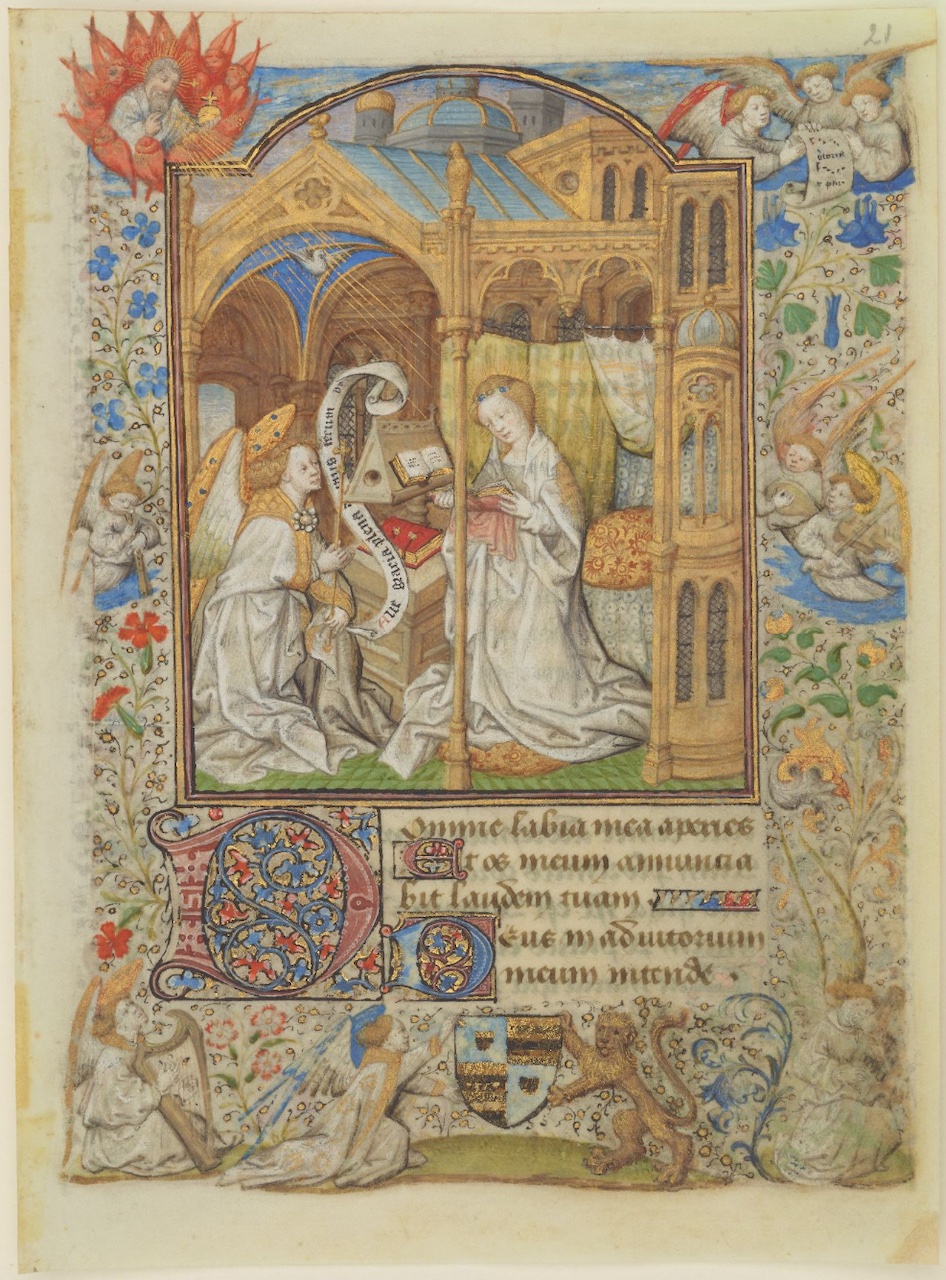 21
Aue Maria plena
Domine labia mea aperies
Et os meum annuncia
bit laudem tuam
Deus in adiutorium
meum intende .